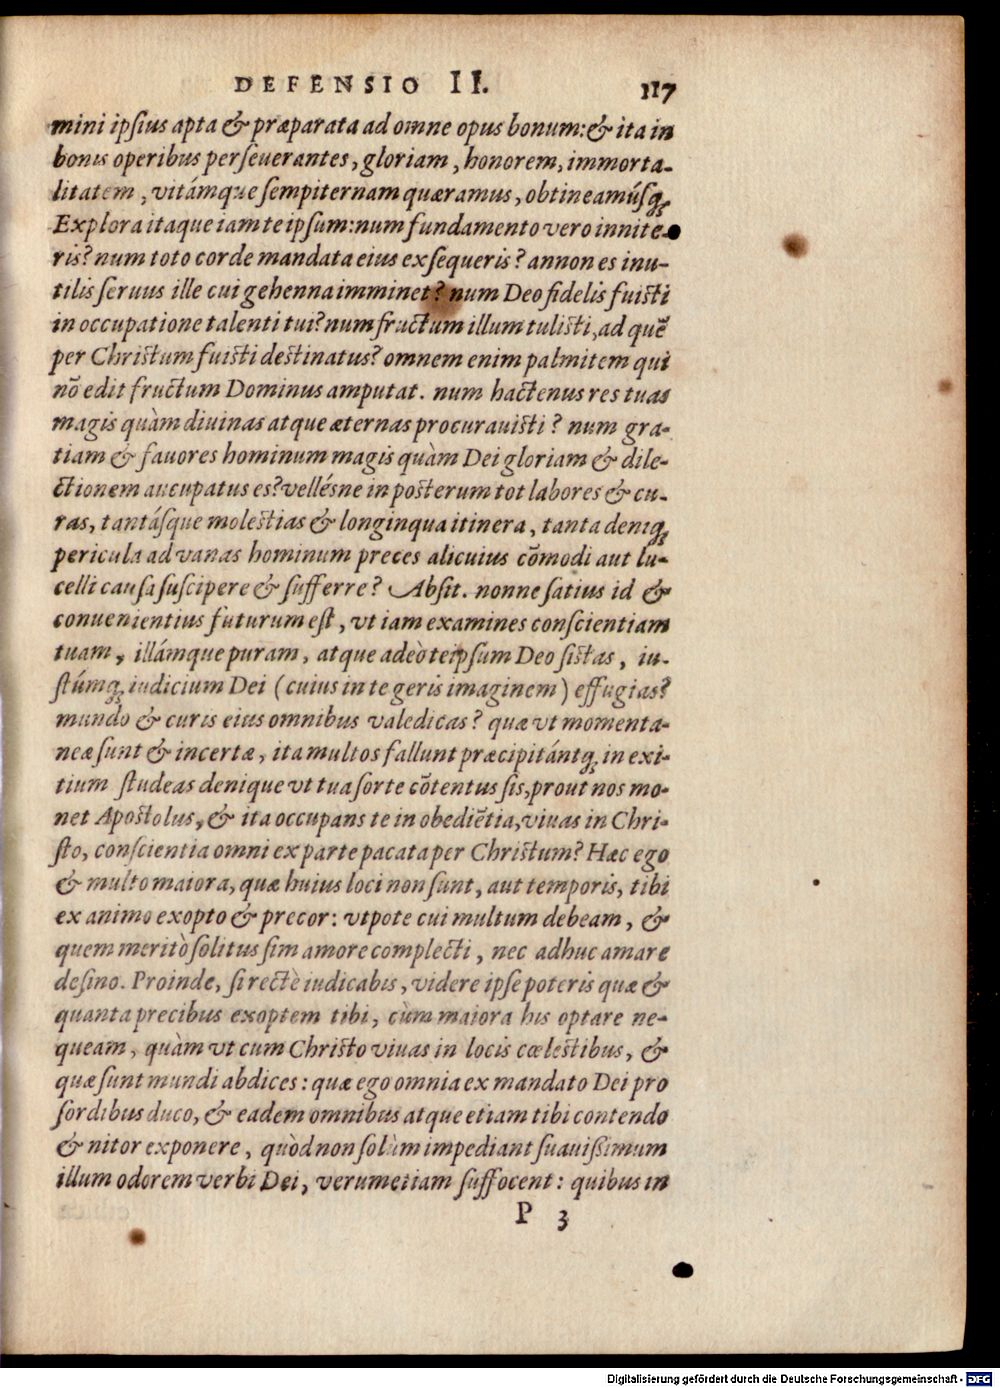 DEFENSIO II. 117
mini ipſius apta & præparata ad omne opus bonum: & ita in
bonis operibus perſeuerantes, gloriam, honorem, immorta-
litatem, vitámque ſempiternam quæramus, obtineamúsq;
Explora itaque iam te ipſum: num fundamento vero innite-
ris? num toto corde mandata eius exſequeris? annon es inu-
tilis ſeruus ille cui gehenna imminet? num Deo fidelis fuiſti
in occupatione talenti tui? num fructum illum tuliſti, ad quẽ
per Chriſtum fuiſti deſtinatus? omnem enim palmitem qui
nõ edit fructum Dominus amputat. num hactenus res tuas
magis quàm diuinas atque æternas procurauiſti? num gra-
tiam & fauores hominum magis quàm Dei gloriam & dile-
ctionem aucupatus es? velléſne in poſterum tot labores & cu-
ras, tantáſque moleſtias & longinqua itinera, tanta deniq;
pericula ad vanas hominum preces alicuius cõmodi aut lu-
celli cauſa ſuſcipere & ſufferre? Abſit. nonne ſatius id &
conuenientius futurum eſt, vt iam examines conſcientiam
tuam, illámque puram, atque adeò teipſum Deo ſiſtas, iu-
ſtúmq; iudicium Dei (cuius in te geris imaginem) effugias?
mundo & curis eius omnibus valedicas? quæ vt momenta-
neæ ſunt & incertæ, ita multos fallunt præcipitántq; in exi-
tium ſtudeas denique vt tua ſorte cõtentus ſis, prout nos mo-
net Apoſtolus, & ita occupans te in obediẽtia, viuas in Chri-
ſto, conſcientia omni ex parte pacata per Chriſtum? Hæc ego
& multo maiora, quæ huius loci non ſunt, aut temporis, tibi
ex animo exopto & precor: vtpote cui multum debeam, &
quem meritò ſolitus ſim amore complecti, nec adhuc amare
deſino. Proinde, ſi rectè iudicabis, videre ipſe poteris quæ &
quanta precibus exoptem tibi, cùm maiora his optare ne-
queam, quàm vt cum Chriſto viuas in locis cœleſtibus, &
quæ ſunt mundi abdices: quæ ego omnia ex mandato Dei pro
ſordibus duco, & eadem omnibus atque etiam tibi contendo
& nitor exponere, quòd non ſolùm impediant ſuauißimum
illum odorem verbi Dei, verumetiam ſuffocent: quibus in
P 3
Digitalisierung gefördert durch die Deutsche Forschungsgemeinschaft - DFG